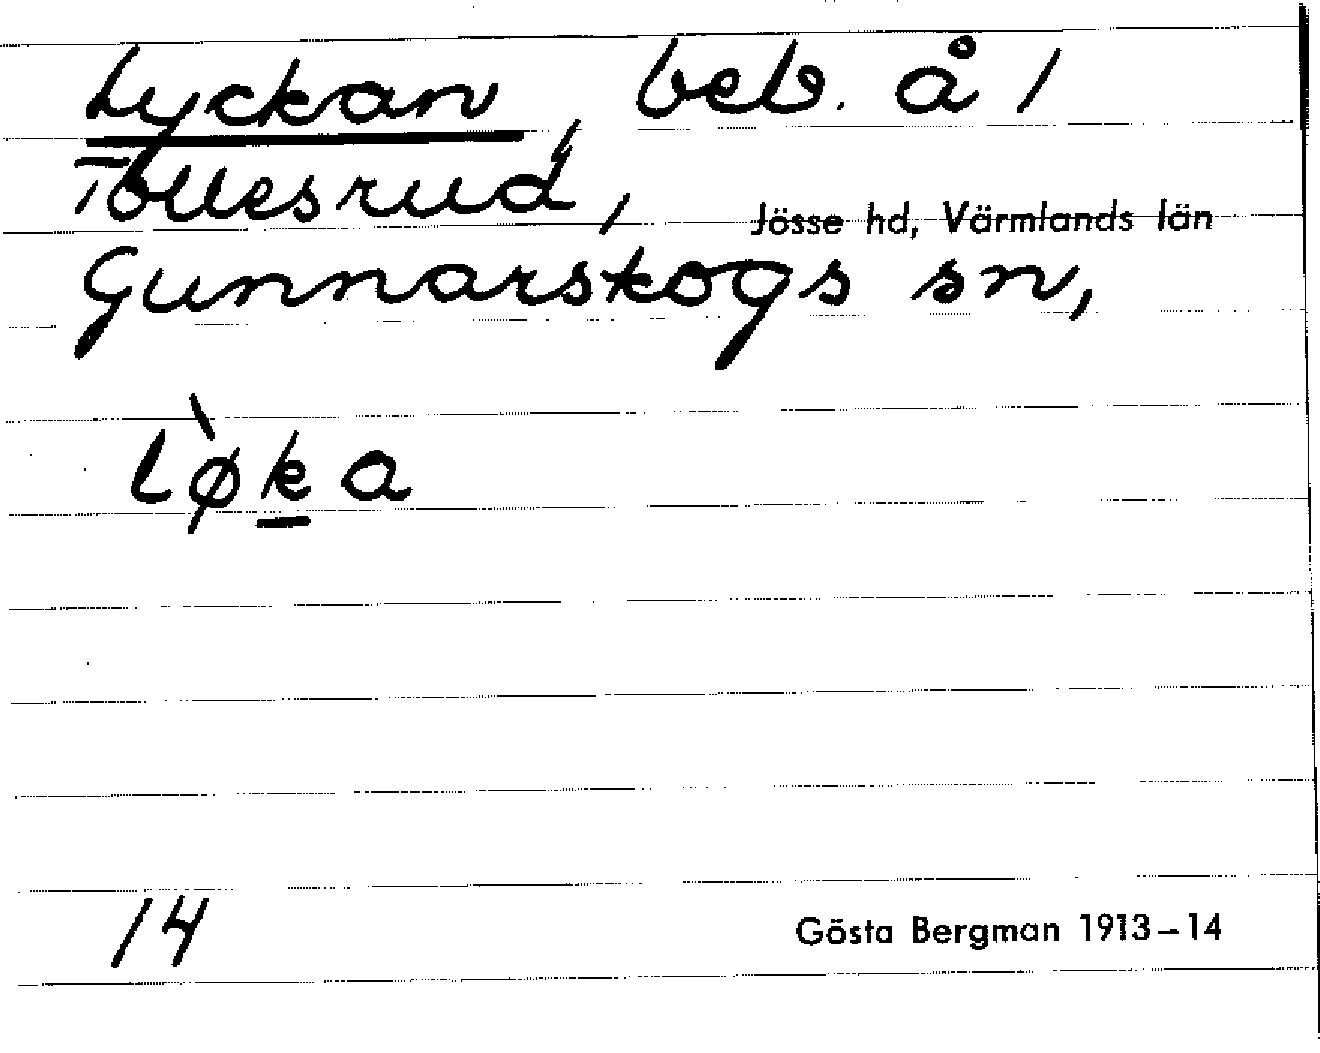 Lyckan, beb. å 1
Tollesrud,
Jösse hd, Värmlands län
Gunnarskogs sn,
lø̀ka
14
Gösta Bergman 1913–14